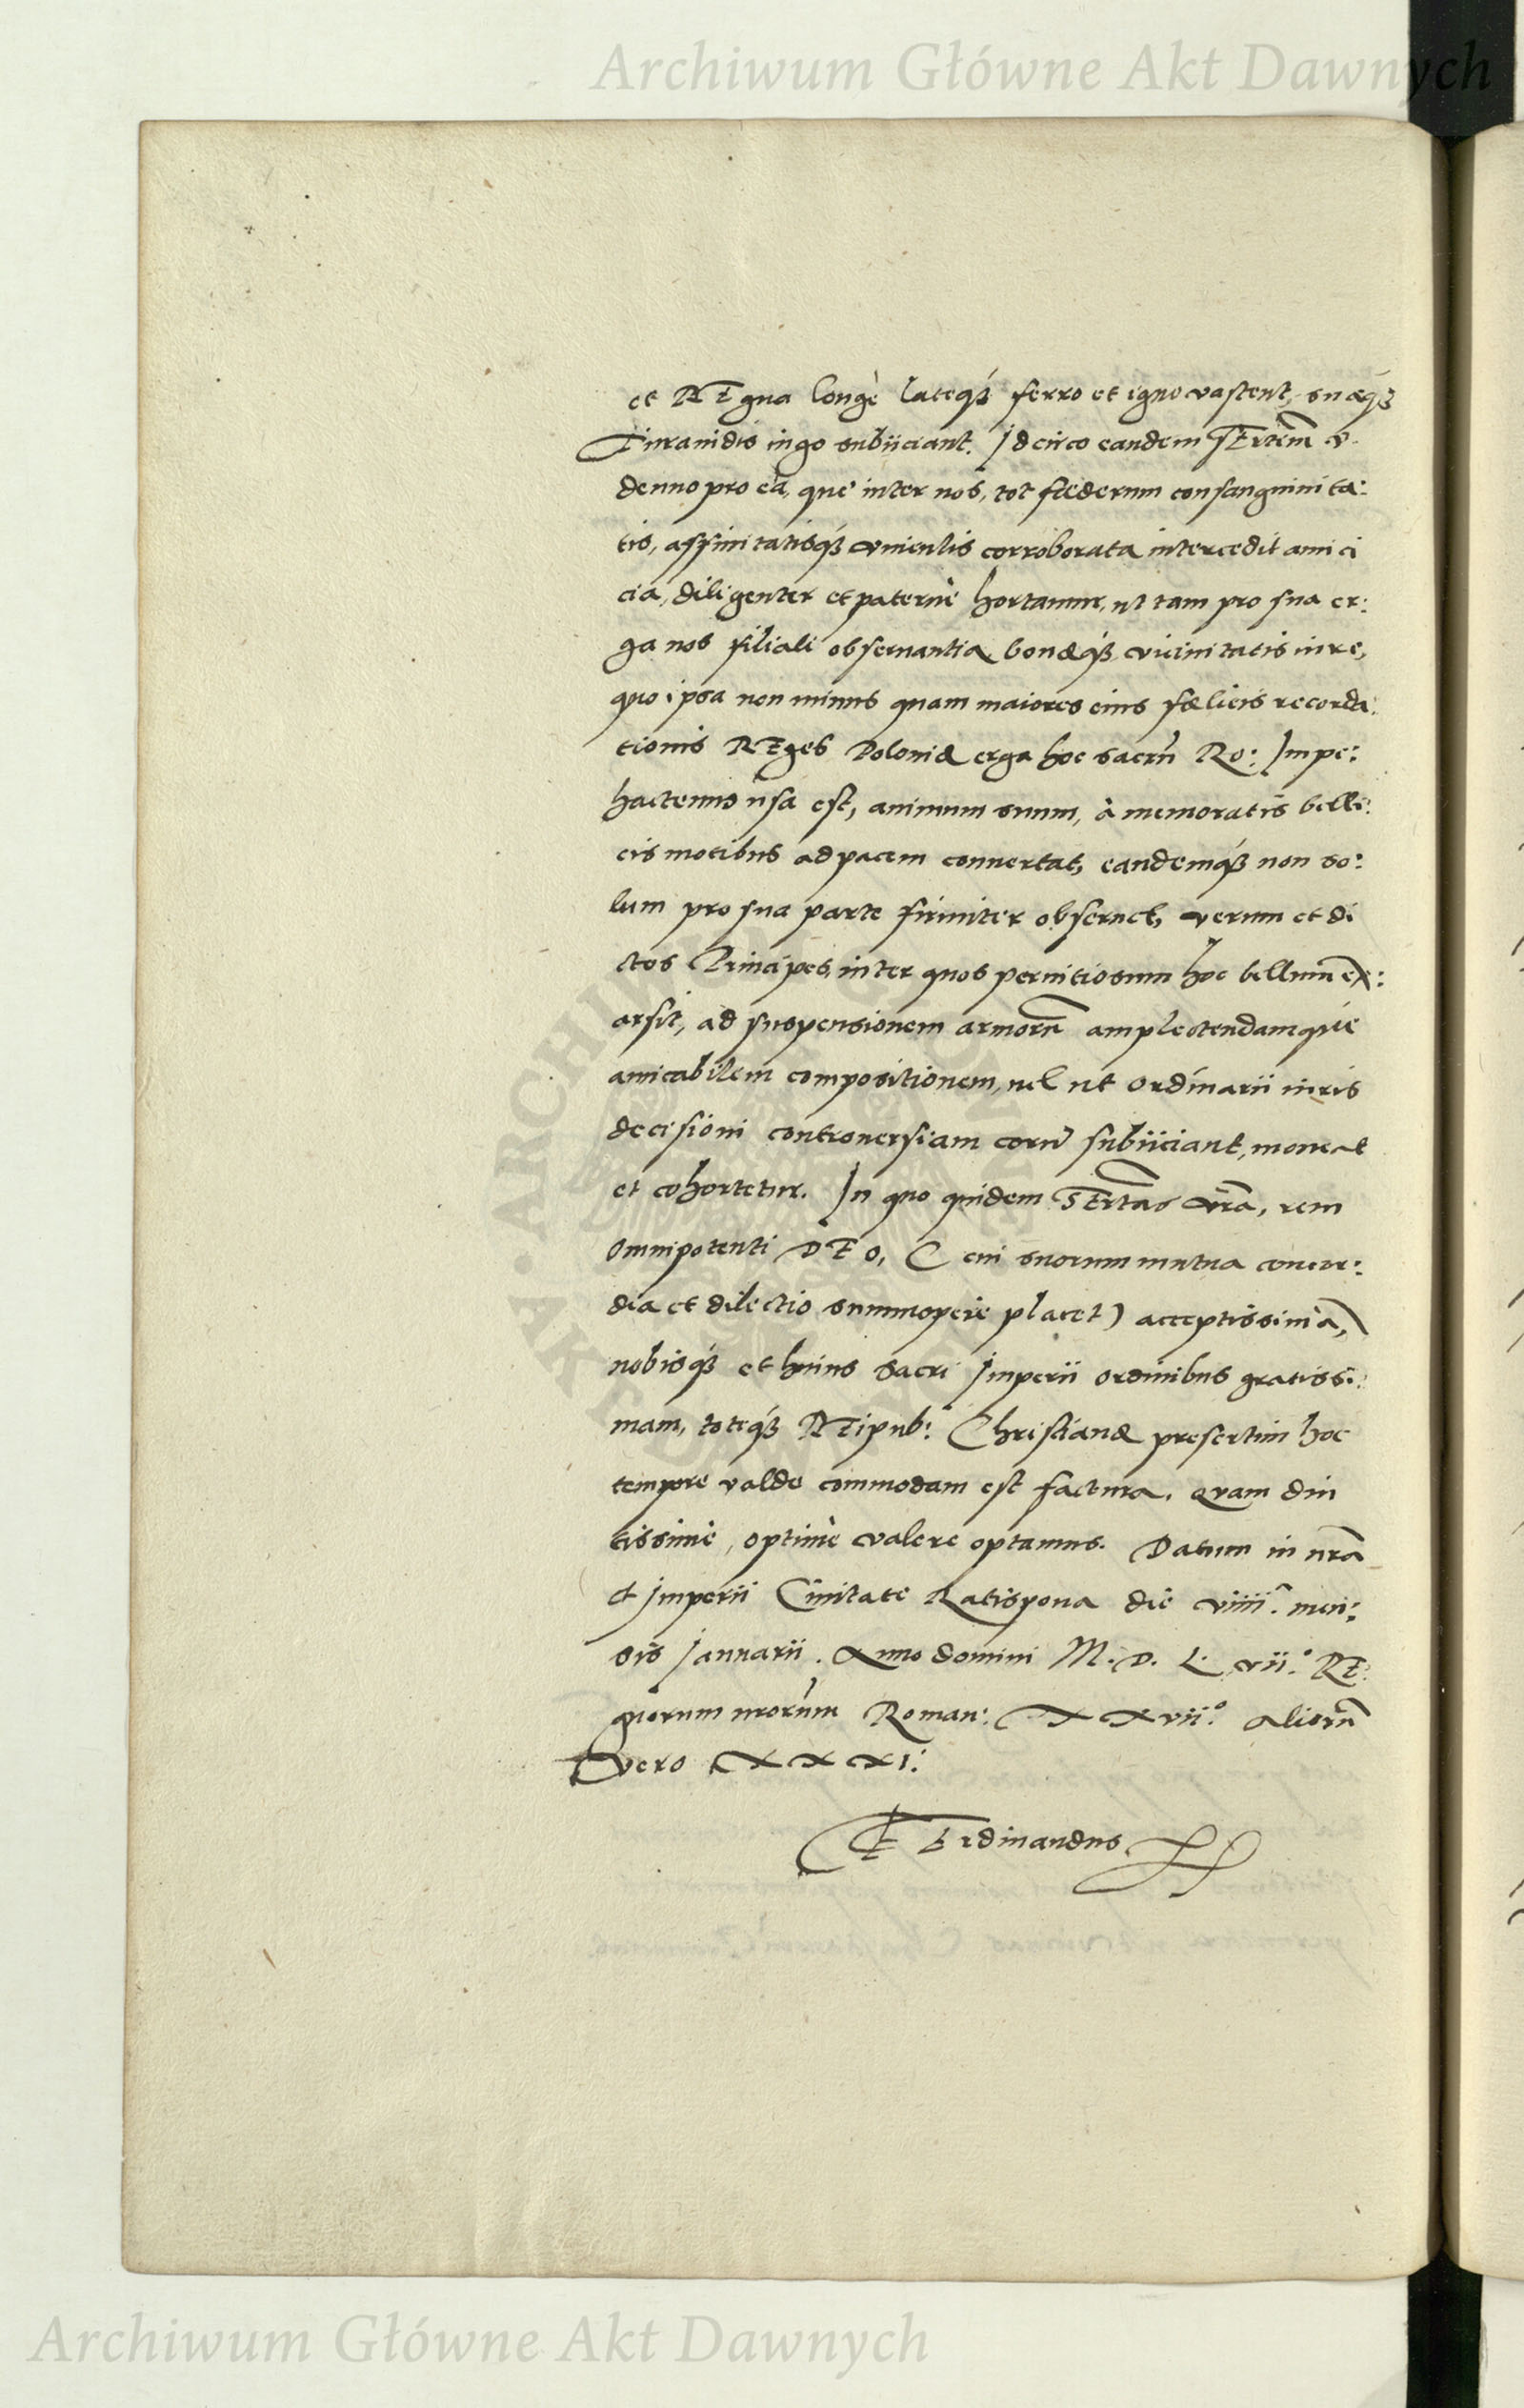 Archiwum Główne Akt Dawnych
et REgna longè lateq́ꝫ ferro et igne vastent, suæq́ꝫ
Tiranidis iugo subiiciant. Idcirco eandem SErtem̃ v.
denuo pro ea, que inter nos, tot fœderum consanguinita:
tis, affinitatisq́ꝫ vinculis corroborata intercedit amici
cia, diligenter et paternè hortamur, ut tam pro sua er:
ga nos filiali obseruantia bonæq́ꝫ vicinitatis iure,
quo ipsa non minus quam maiores eius fælicis recorda:
tionis REges Poloniæ erga hoc sacrũ Ro: Impe:
hactenus usa est, animum suum, à memoratis belli:
cis motibus ad pacem conuertat, eandemq́ꝫ non so:
lum pro sua parte firmiter obseruet, verum et di
ctos Principes, inter quos pernitiosum hoc bellum ex:
arsit, ad suspensionem armorũ amplectendamque
amicabilem compositionem, uel ut ordinarii iuris
decisioni controuersiam eorũ subiiciant, moneat
et cohortetur. In quo quidem SErtas vrã, rem
Omnipotenti DEO, ( cui suorum mutua concor:
dia et dilectio summopere placet) acceptissimã,
nobisq́ꝫ et huius Sacri Imperii ordinibus gratissi:
mam, toteq́ꝫ REipub: Christianæ presertim hoc
tempore valde commodam est factura. Quam diu
tissimè, optimè valere optamus. Datum in nrã
et Imperii Ciuitate Ratispona die viiii.ᵃ men:
sis Januarii. Anno domini M. D. L. vii.° RE:
gnorum nrorũm Roman: XXvii.° aliorũ
vero XXXI:
FErdinandus
ARCHIWUM GŁÓWNE AKT DAWNYCH
Archiwum Główne Akt Dawnych